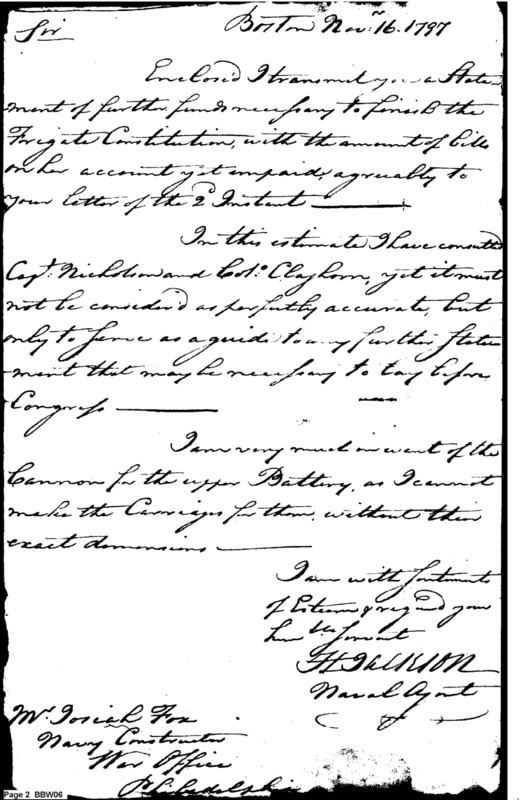 Boston Novr. 16. 1797
Sir
Enclos'd I transmit you a State-
ment of further funds necessary to finish the
Foregate Constitution, with the amount of bills
on her account yet unpaid, agreuably to
your letter of the 2d Instant
In this estimate I have consulted
Capt. Nicholson and Colo. Claghorn, yet it must
not be consider'd as perfectly accurate, but
only to serve as a guide to any further State-
ment that may be necessary to lay before
Congress
I am very much in want of the
Cannon for the upper Battery, as I cannot
make the Carriages for them, without their
exact demensions
I am with sentiments
of Esteem & regard your
hum ble Servant
H JACKSON
Naval Agent
Mr. Josiah Fox
Navy Constructor
War Office
Philadelphia
Page 2 BBW06